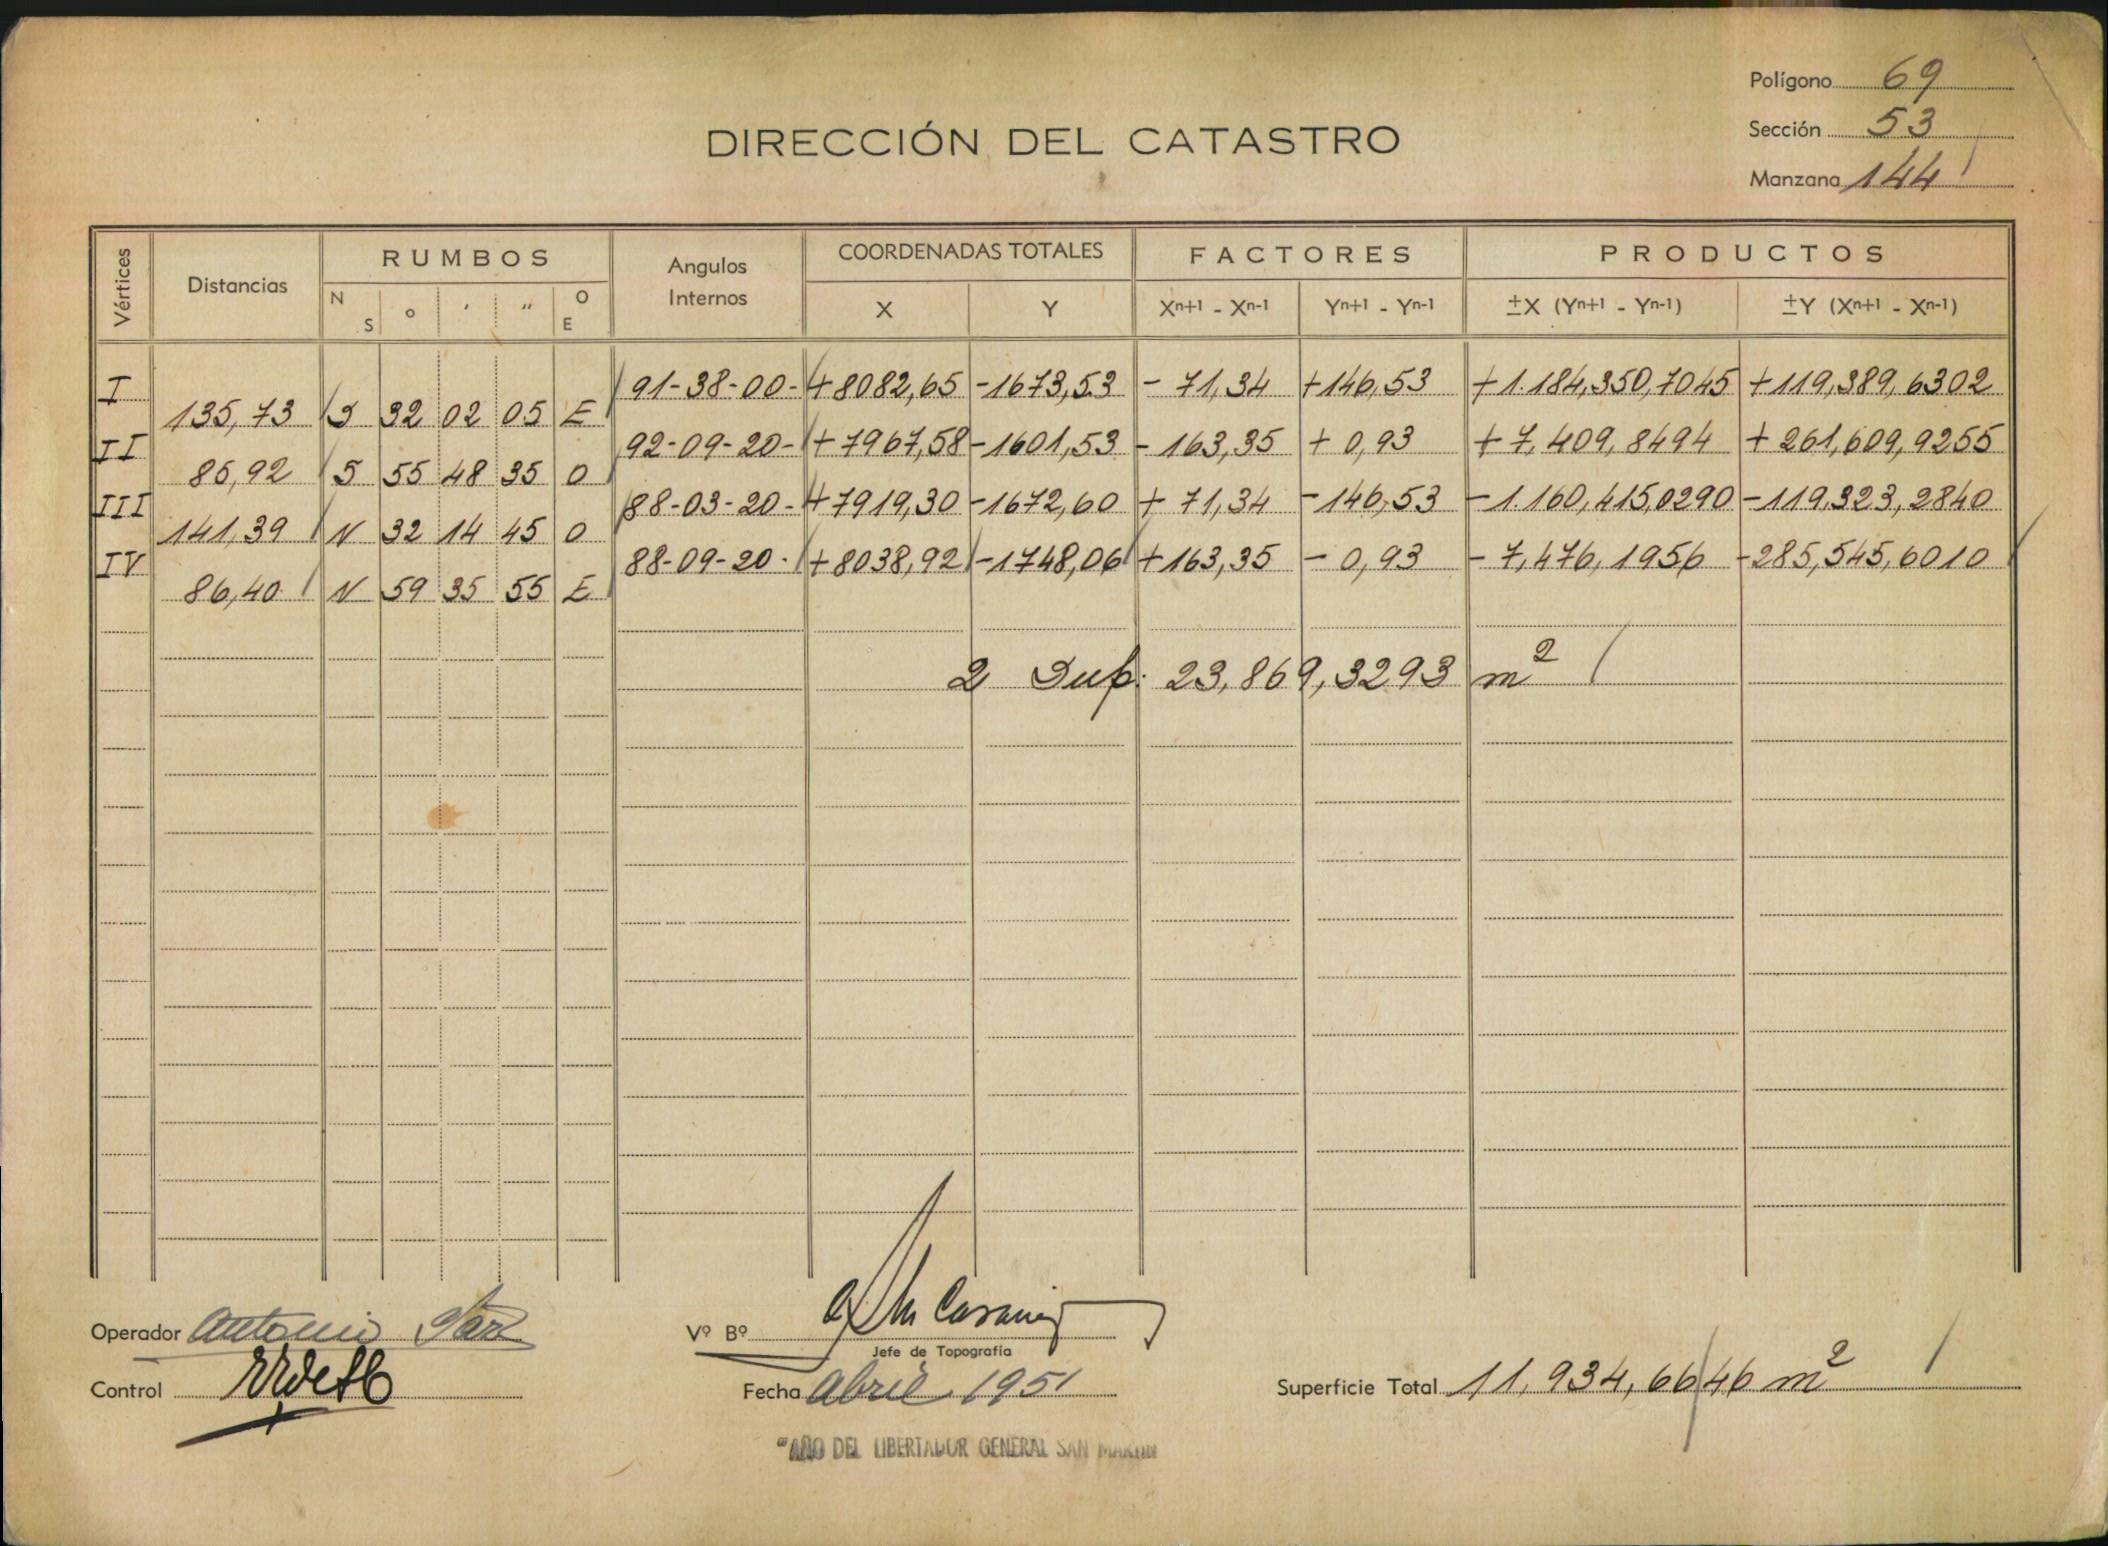 Polígono 69
Sección 53
Manzana 144
DIRECCIÓN DEL CATASTRO
Vértices Distancias RUMBOS Angulos Internos COORDENADAS TOTALES FACTORES PRODUCTOS
N S o ' " O E X Y Xn+1 - Xn-1 Yn+1 - Yn-1 ±X (Yn+1 - Yn-1) ±Y (Xn+1 - Xn-1)
I 91-38-00- +8082,65 -1673,53 - 71,34 +146,53 +1.184,350,7045 +119,389,6302
135,73 S 32 02 05 E
II 92-09-20- +7967,58 -1601,53 -163,35 + 0,93 +7,409,8494 +261,609,9255
85,92 S 55 48 35 O
III 88-03-20- +7919,30 -1672,60 + 71,34 -146,53 -1.160,415,0290 -119,323,2840
141,39 N 32 14 45 O
IV 88-09-20- +8038,92 -1748,06 +163,35 - 0,93 -7,476,1956 -285,545,6010
86,40 N 59 35 55 E
2 Sup. 23,869,3293 m²
Operador Antonio
Vº Bº
Jefe de Topografía
Control
Fecha Abril 1951
Superficie Total 11,934,6646 m²
"AÑO DEL LIBERTADOR GENERAL SAN MARTIN